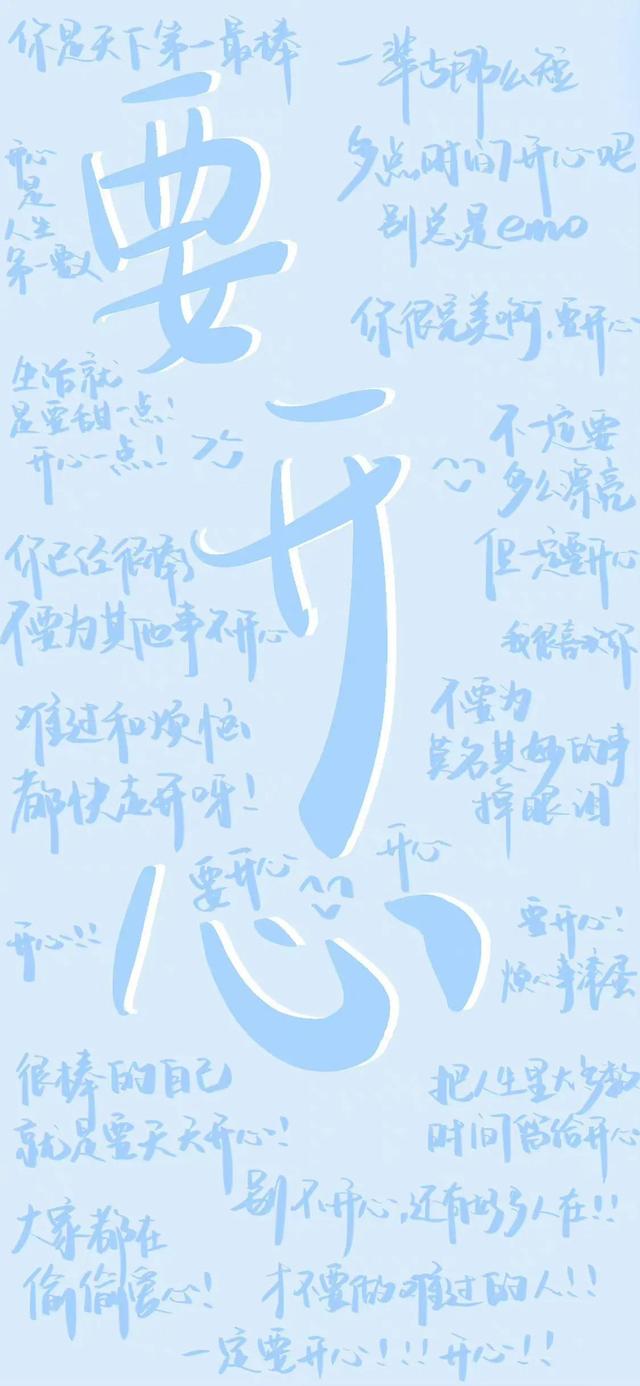 你是天下第一最棒
一辈古那么短
多点时间开心吧
别总是emo
开心
是
人生
第一要义
要
你很完美啊,要开心
生活就
是要甜一点!
开心一点!
开
不一定要
多么漂亮
但一定要开心
我很喜欢你
你已经很棒
不要为其他事不开心
难过和烦恼
都快走开呀!
不要为
莫名其妙的事
掉眼泪
要开心
开心
开心!!
心
要开心!
烦心事滚蛋
很棒的自己
就是要天天开心!
把人生里大多数
时间留给开心
别不开心,还有好多人在!!
大家都在
偷偷爱心!
才不要做难过的人!!
一定要开心!!!开心!!